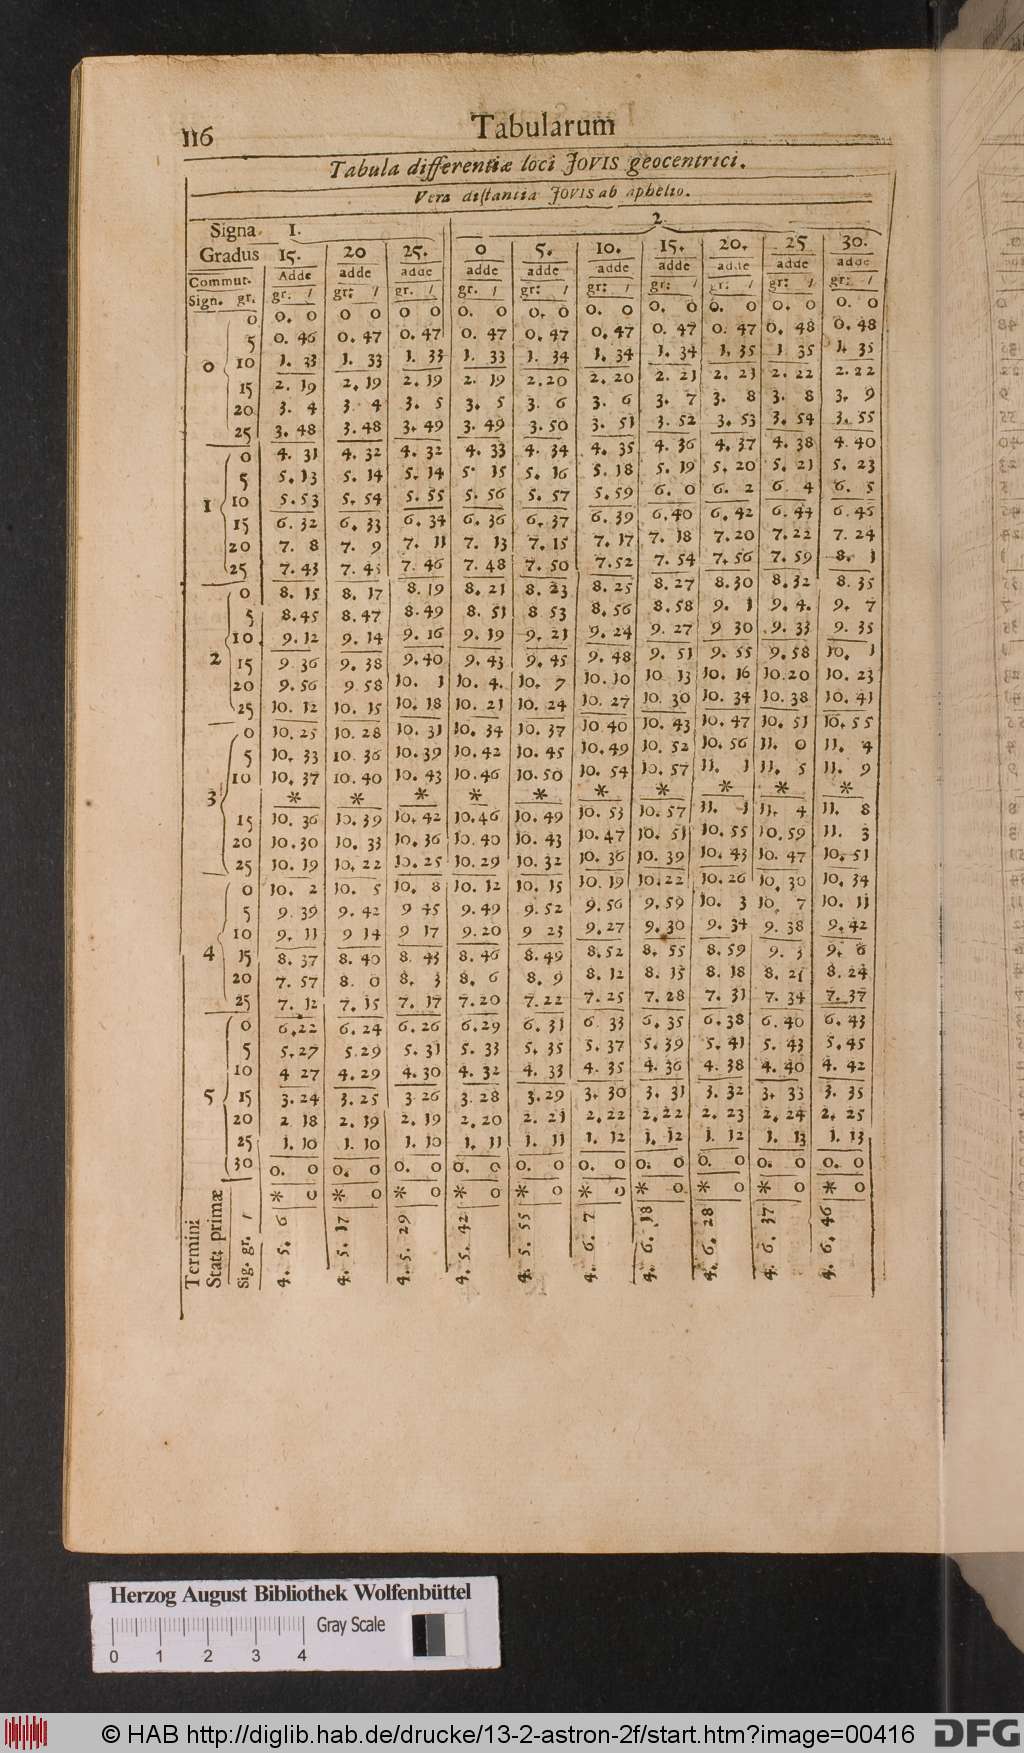 116 Tabularum
Tabula differentiæ loci JOVIS geocentrici.
Vera distantia JOVIS ab aphelio.
Signa. 1. 2
Gradus 15. 20 25. 0 5. 10. 15. 20. 25 30.
Commut. Adde adde adde adde adde adde adde adde adde adde
Sign. gr. gr. / gr: / gr. / gr. / gr: / gr: / gr: / gr: / gr: / gr: /
0 0. 0 0 0 0 0 0. 0 0. 0 0. 0 0. 0 0. 0 0. 0 0. 0
5 0. 46 0. 47 0. 47 0. 47 0. 47 0. 47 0. 47 0. 47 0. 48 0. 48
0 10 1. 33 1. 33 1. 33 1. 33 1. 34 1. 34 1. 34 1. 35 1 35 1. 35
15 2. 19 2. 19 2. 19 2. 19 2. 20 2. 20 2. 21 2. 21 2. 22 2. 22
20 3. 4 3 4 3. 5 3. 5 3. 6 3. 6 3. 7 3. 8 3. 8 3. 9
25 3. 48 3. 48 3. 49 3. 49 3. 50 3. 51 3. 52 3. 53 3. 54 3. 55
0 4. 31 4. 32 4. 32 4. 33 4. 34 4. 35 4. 36 4. 37 4. 38 4. 40
5 5. 13 5. 14 5. 14 5. 15 5. 16 5. 18 5. 19 5. 20 5. 21 5. 23
1 10 5. 53 5. 54 5. 55 5. 56 5. 57 5. 59 6. 0 6. 2 6 4 6. 5
15 6. 32 6. 33 6. 34 6. 36 6. 37 6. 39 6. 40 6. 42 6. 44 6. 46
20 7. 8 7. 9 7. 11 7. 13 7. 15 7. 17 7. 18 7. 20 7. 22 7. 24
25 7. 43 7. 45 7. 46 7. 48 7. 50 7. 52 7. 54 7. 56 7. 59 8. 1
0 8. 15 8. 17 8. 19 8. 21 8. 23 8. 25 8. 27 8. 30 8. 32 8. 35
5 8. 45 8. 47 8. 49 8. 51 8 53 8. 56 8. 58 9. 1 9. 4. 9. 7
10. 9. 12 9. 14 9. 16 9. 19 9. 21 9. 24 9. 27 9 30 9. 33 9. 35
2 15 9 36 9. 38 9. 40 9. 43 9. 45 9. 48 9. 51 9. 55 9. 58 10. 1
20 9. 56 9 58 10. 1 10. 4. 10. 7 10. 10 10 13 10. 16 10. 20 10. 23
25 10. 12 10. 15 10. 18 10. 21 10. 24 10. 27 10. 30 10. 34 10. 38 10. 41
0 10. 25 10. 28 10. 31 10. 34 10. 37 10 40 10. 43 10. 47 10. 51 10. 55
5 10. 33 10 36 10. 39 10. 42 10. 45 10. 49 10. 52 10. 56 11. 0 11. 4
10 10. 37 10. 40 10. 43 10. 46 10. 50 10. 54 10. 57 11. 1 11. 5 11. 9
3 * * * * * * * * * *
15 10. 36 10. 39 10. 42 10. 46 10. 49 10. 53 10. 57 11. 1 11. 4 11. 8
20 10. 30 10. 33 10. 36 10. 40 10. 43 10. 47 10. 51 10. 55 10. 59 11. 3
25 10. 19 10. 22 10. 25 10. 29 10. 32 10. 36 10. 39 10. 43 10. 47 10. 51
0 10. 2 10. 5 10. 8 10. 12 10. 15 10. 19 10. 22 10. 26 10. 30 10. 34
5 9. 39 9. 42 9 45 9. 49 9. 52 9. 56 9. 59 10. 3 10. 7 10. 11
10 9. 11 9 14 9 17 9. 20 9 23 9. 27 9. 30 9. 34 9. 38 9. 42
4 15 8. 37 8. 40 8. 43 8. 46 8. 49 8. 52 8. 55 8. 59 9. 3 9. 6
20 7. 57 8. 0 8. 3 8. 6 8. 9 8. 12 8. 15 8. 18 8. 21 8. 24
25 7. 12 7. 15 7. 17 7. 20 7. 22 7. 25 7. 28 7. 31 7. 34 7. 37
0 6. 22 6. 24 6. 26 6. 29 6. 31 6 33 6. 35 6. 38 6. 40 6. 43
5 5. 27 5. 29 5. 31 5. 33 5. 35 5. 37 5. 39 5. 41 5. 43 5. 45
10 4 27 4. 29 4. 30 4. 32 4. 33 4. 35 4. 36 4. 38 4. 40 4. 42
5 15 3. 24 3. 25 3 26 3. 28 3. 29 3. 30 3. 31 3. 32 3. 33 3. 35
20 2 18 2. 19 2. 19 2. 20 2. 21 2. 22 2. 22 2. 23 2. 24 2. 25
25 1. 10 1. 10 1. 10 1. 11 1. 11 1. 12 1. 12 1. 12 1. 13 1. 13
30 0. 0 0. 0 0. 0 0. 0 0. 0 0. 0 0. 0 0. 0 0. 0 0. 0
* 0 * 0 * 0 * 0 * 0 * 0 * 0 * 0 * 0 * 0
Termini
Stat: primæ
Sig. gr. / 4. 5. 6 4. 5. 17 4. 5. 29 4. 5. 42 4. 5. 55 4. 6. 7 4. 6. 18 4. 6. 28 4. 6. 37 4. 6. 46
Herzog August Bibliothek Wolfenbüttel
Gray Scale
0 1 2 3 4
© HAB http://diglib.hab.de/drucke/13-2-astron-2f/start.htm?image=00416 DFG